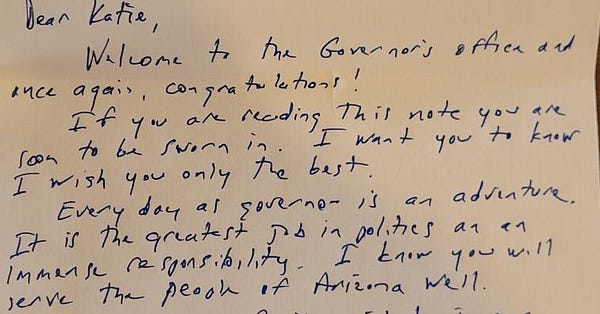 Dear Katie,
Welcome to the Governor's office and
once again, congratulations!
If you are reading this note you are
soon to be sworn in. I want you to know
I wish you only the best.
Every day as governor is an adventure.
It is the greatest job in politics an an
immense responsibility. I know you will
serve the people of Arizona well.